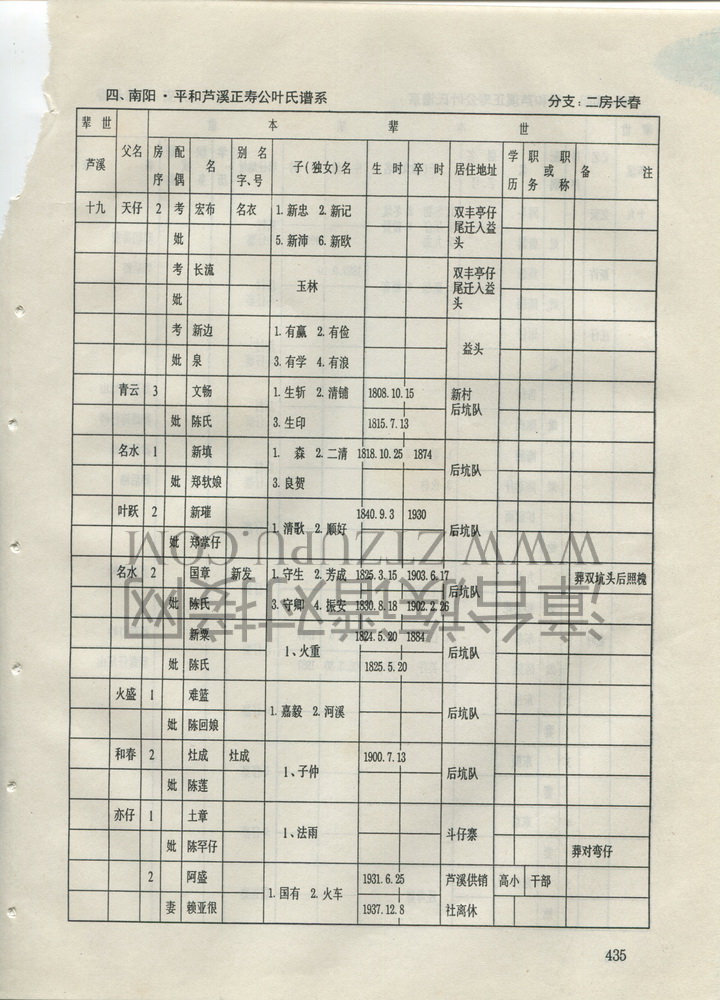 四、南阳·平和芦溪正寿公叶氏谱系 分支：二房长春
辈世 本 辈 世
芦溪 父名 房序 配偶 名 别名字、号 子(独女)名 生时 卒时 居住地址 学历 职务或职称 备注
十九 天仔 2 考 宏布 名衣 1.新忠 2.新记 双丰亭仔尾迁入益头
妣 5.新沛 6.新欧
考 长流 玉林 双丰亭仔尾迁入益头
妣
考 新边 1.有赢 2.有俭 益头
妣 泉 3.有学 4.有浪
青云 3 文畅 1.生斩 2.清铺 1808.10.15 新村后坑队
妣 陈氏 3.生印 1815.7.13
名水 1 新填 1.森 2.二清 1818.10.25 1874 后坑队
妣 郑软娘 3.良贺
叶跃 2 新璀 1.清歌 2.顺好 1840.9.3 1930 后坑队
妣 郑常仔
名水 2 国章 新发 1.守生 2.芳成 1825.3.15 1903.6.17 后坑队 葬双坑头后照槐
妣 陈氏 3.守卿 4.振安 1830.8.18 1902.2.26
新粟 1、火重 1824.5.20 1884 后坑队
妣 陈氏 1825.5.20
火盛 1 难篮 1.嘉毅 2.河溪 后坑队
妣 陈回娘
和春 2 灶成 灶成 1、子仲 1900.7.13 后坑队
妣 陈莲
亦仔 1 土章 1、法雨 斗仔寨
妣 陈罕仔 葬对弯仔
2 阿盛 1.国有 2.火车 1931.6.25 芦溪供销社离休 高小 干部
妻 赖亚很 1937.12.8
435
WWW.ZTZUPU.COM
漳台族谱对接网